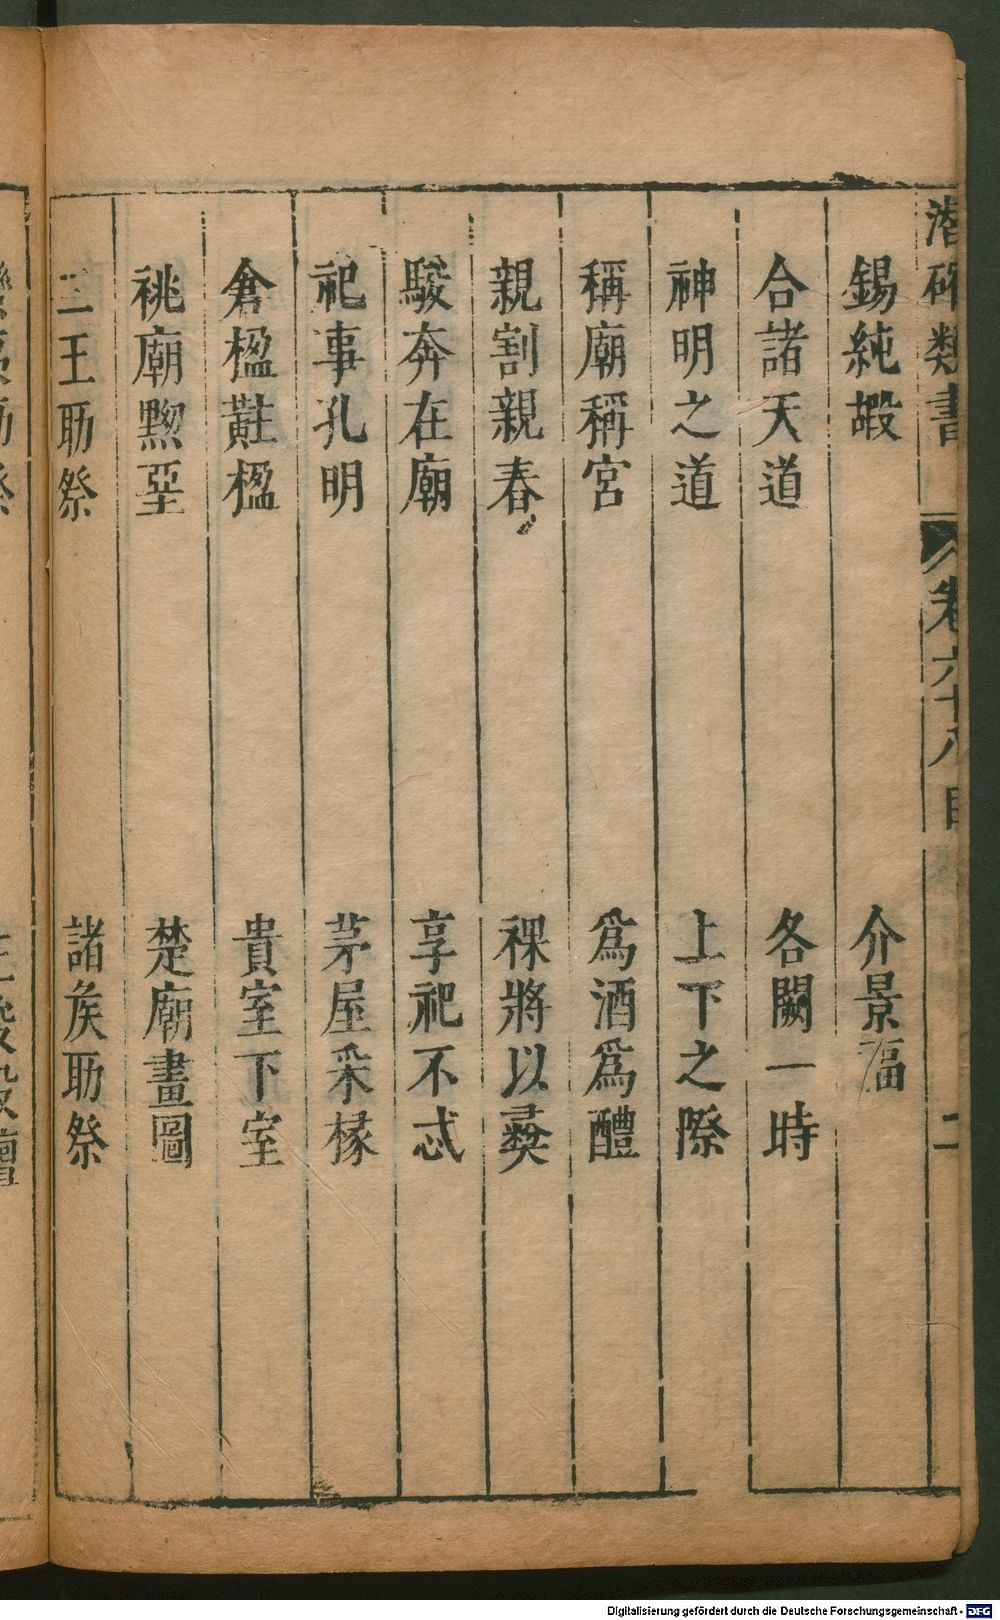 潛確類書 卷六十八目 二
錫純嘏 介景福
合諸天道 各闕一時
神明之道 上下之際
稱廟稱宮 爲酒爲醴
親割親舂 祼將以彝
駿奔在廟 享祀不忒
祀事孔明 茅屋采椽
倉楹黈楹 貴室下室
祧廟黝堊 楚廟畫圖
二王助祭 諸矦助祭
Digitalisierung gefördert durch die Deutsche Forschungsgemeinschaft - DFG